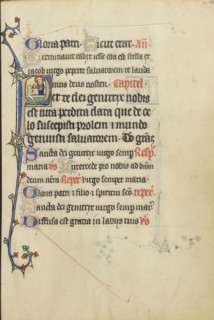 Gloria patri. Sicut erat. An
Germinavit radix iesse orta est stella ex
iacob virgo peperit salvatorem te lauda
mus deus noster. Capitel'
Per te dei genitrix nobis
est vita perdita data que de ce
lo suscepisti prolem et mundo
genuisti salvatorem. Deo gratias
Sancta dei genitrix virgo semper Resp'
maria Vs Intercede pro nobis ad dominum
deum nostrum Repet' virgo semper maria
Gloria patri et filio et spiritui sancto. repet'
Sancta dei genitrix virgo semp mar'
Diffusa est gratia in labiis tuis Vs